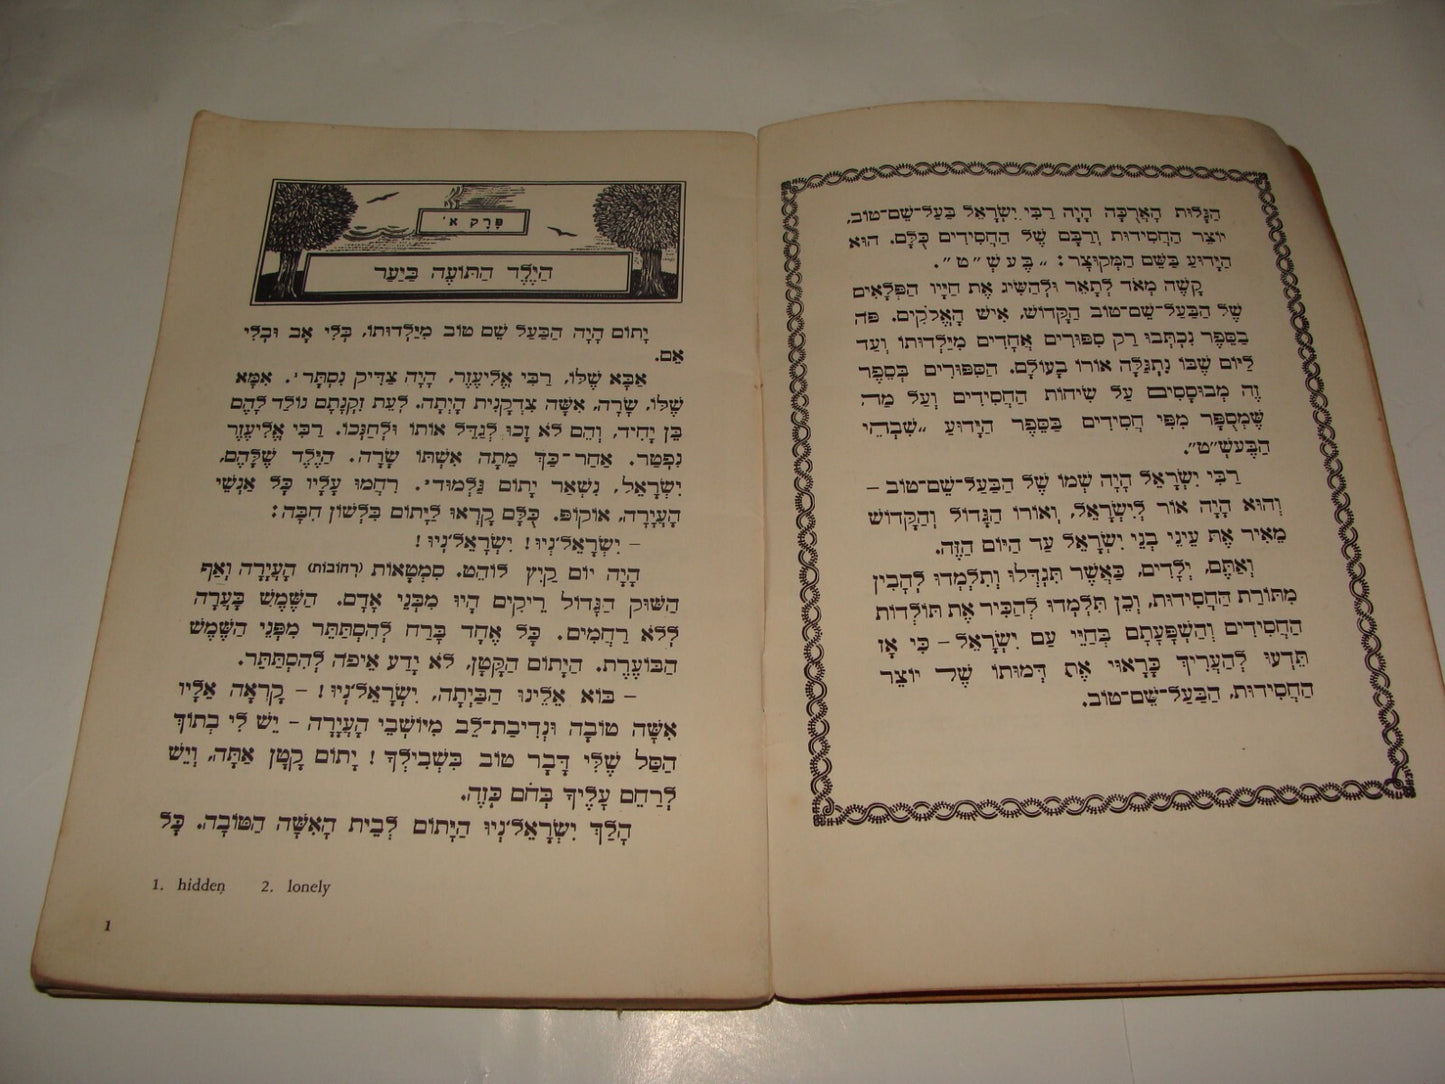 הַגָּלוּת הָאֲרֻכָּה הָיָה רַבִּי יִשְׂרָאֵל בַּעַל־שֵׁם־טוֹב,
יוֹצֵר הַחֲסִידוּת וְרַבָּם שֶׁל הַחֲסִידִים כֻּלָּם. הוּא
הַיָּדוּעַ בַּשֵּׁם הַמְקוּצָר: „בֶּעשְׁ״ט״.
קָשֶׁה מְאֹד לְתָאֵר וּלְהַשִּׂיג אֶת חַיָּיו הַפְּלָאִים
שֶׁל הַבַּעַל־שֵׁם־טוֹב הַקָּדוֹשׁ, אִישׁ הָאֱלֹקִים. פֹּה
בַּסֵּפֶר נִכְתְּבוּ רַק סִפּוּרִים אֲחָדִים מִיַּלְדוּתוֹ וְעַד
לַיּוֹם שֶׁבּוֹ נִתְגַּלָּה אוֹרוֹ בָעוֹלָם. הַסִּפּוּרִים בְּסֵפֶר
זֶה מְבוּסָּסִים עַל שִׂיחוֹת הַחֲסִידִים וְעַל מַה
שֶּׁמְסֻפָּר מִפִּי חֲסִידִים בַּסֵּפֶר הַיָּדוּעַ „שִׁבְחֵי
הַבֶּעשְׁ״ט״.
רַבִּי יִשְׂרָאֵל הָיָה שְׁמוֹ שֶׁל הַבַּעַל־שֵׁם־טוֹב –
וְהוּא הָיָה אוֹר לְיִשְׂרָאֵל, וְאוֹרוֹ הַגָּדוֹל וְהַקָּדוֹשׁ
מֵאִיר אֶת עֵינֵי בְנֵי יִשְׂרָאֵל עַד הַיּוֹם הַזֶּה.
וְאַתֶּם, יְלָדִים, כַּאֲשֶׁר תִּגְדְּלוּ וְתִלְמְדוּ לְהָבִין
מִתּוֹרַת הַחֲסִידוּת, וְכֵן תִּלְמְדוּ לְהַכִּיר אֶת תּוֹלְדוֹת
הַחֲסִידִים וְהַשְׁפָּעָתָם בְּחַיֵּי עַם יִשְׂרָאֵל – כִּי אָז
תֵּדְעוּ לְהַעֲרִיךְ כָּרָאוּי אֶת דְּמוּתוֹ שֶׁל יוֹצֵר
הַחֲסִידוּת, הַבַּעַל־שֵׁם־טוֹב.
פֶּרֶק א׳
הַיֶּלֶד הַתּוֹעֶה בַּיַּעַר
יָתוֹם הָיָה הַבַּעַל שֵׁם טוֹב מִיַּלְדוּתוֹ, בְּלִי אָב וּבְלִי
אֵם.
אַבָּא שֶׁלּוֹ, רַבִּי אֱלִיעֶזֶר, הָיָה צַדִּיק נִסְתָּר¹. אִמָּא
שֶׁלּוֹ, שָׂרָה, אִשָּׁה צִדְקָנִית הָיְתָה. לְעֵת זִקְנָתָם נוֹלַד לָהֶם
בֵּן יָחִיד, וְהֵם לֹא זָכוּ לְגַדֵּל אוֹתוֹ וּלְחַנְּכוֹ. רַבִּי אֱלִיעֶזֶר
נִפְטַר. אַחַר־כַּךְ מֵתָה אִשְׁתּוֹ שָׂרָה. הַיֶּלֶד שֶׁלָּהֶם,
יִשְׂרָאֵל, נִשְׁאַר יָתוֹם גַּלְמוּד². רִחֲמוּ עָלָיו כָּל אַנְשֵׁי
הָעֲיָרָה, אוֹקוֹפּ. כֻּלָּם קָרְאוּ לַיָּתוֹם בִּלְשׁוֹן חִבָּה:
– יִשְׂרָאֵלִ׳נְיוּ! יִשְׂרָאֵלִ׳נְיוּ!
הָיָה יוֹם קַיִץ לוֹהֵט. סִמְטָאוֹת (רְחוֹבוֹת) הָעֲיָרָה וְאַף
הַשּׁוּק הַגָּדוֹל רֵיקִים הָיוּ מִבְּנֵי אָדָם. הַשֶּׁמֶשׁ בָּעֲרָה
לְלֹא רַחֲמִים. כָּל אֶחָד בָּרַח לְהִסְתַּתֵּר מִפְּנֵי הַשֶּׁמֶשׁ
הַבּוֹעֶרֶת. הַיָּתוֹם הַקָּטָן, לֹא יָדַע אֵיפֹה לְהִסְתַּתֵּר.
– בּוֹא אֵלֵינוּ הַבַּיְתָה, יִשְׂרָאֵלִ׳נְיוּ! – קָרְאָה אֵלָיו
אִשָּׁה טוֹבָה וּנְדִיבַת־לֵב מִיּוֹשְׁבֵי הָעֲיָרָה – יֵשׁ לִי בְּתוֹךְ
הַסַּל שֶׁלִּי דָּבָר טוֹב בִּשְׁבִילְךָ! יָתוֹם קָטָן אַתָּה, וְיֵשׁ
לְרַחֵם עָלֶיךָ בְּחֹם כָּזֶה.
הָלַךְ יִשְׂרָאֵלִ׳נְיוּ הַיָּתוֹם לְבֵית הָאִשָּׁה הַטּוֹבָה. כָּל
1. hidden 2. lonely
1